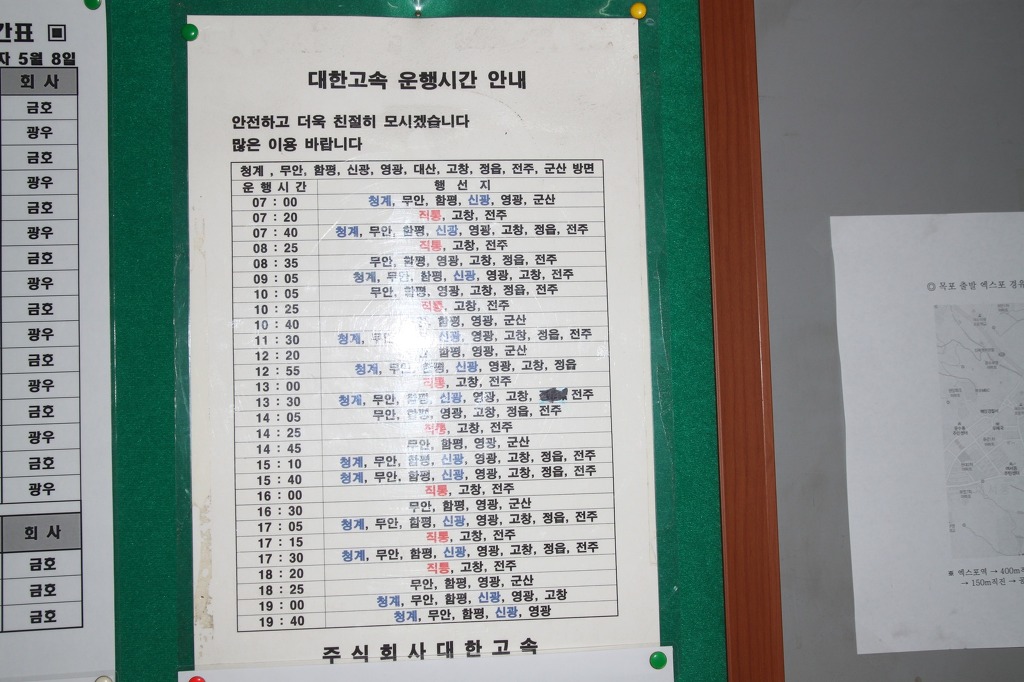 간표 ▣
자 5월 8일
회 사
금호
광우
금호
광우
금호
광우
금호
광우
금호
광우
금호
광우
금호
광우
금호
광우
회 사
금호
금호
금호
대한고속 운행시간 안내
안전하고 더욱 친절히 모시겠습니다
많은 이용 바랍니다
청계 , 무안, 함평, 신광, 영광, 대산, 고창, 정읍, 전주, 군산 방면
운 행 시 간 행 선 지
07 : 00 청계, 무안, 함평, 신광, 영광, 군산
07 : 20 직통, 고창, 전주
07 : 40 청계, 무안, 함평, 신광, 영광, 고창, 정읍, 전주
08 : 25 직통, 고창, 전주
08 : 35 무안, 함평, 영광, 고창, 정읍, 전주
09 : 05 청계, 무안, 함평, 신광, 영광, 고창, 전주
10 : 05 무안, 함평, 영광, 고창, 정읍, 전주
10 : 25 직통, 고창, 전주
10 : 40 함평, 영광, 군산
11 : 30 청계, 무안, 신광, 영광, 고창, 정읍, 전주
12 : 20 함평, 영광, 군산
12 : 55 청계, 무안, 함평, 신광, 영광, 고창, 정읍
13 : 00 직통, 고창, 전주
13 : 30 청계, 무안, 함평, 신광, 영광, 고창, 전주
14 : 05 무안, 함평, 영광, 고창, 정읍, 전주
14 : 25 직통, 고창, 전주
14 : 45 무안, 함평, 영광, 군산
15 : 10 청계, 무안, 함평, 신광, 영광, 고창, 정읍, 전주
15 : 40 청계, 무안, 함평, 신광, 영광, 고창, 정읍, 전주
16 : 00 직통, 고창, 전주
16 : 30 무안, 함평, 영광, 군산
17 : 05 청계, 무안, 함평, 신광, 영광, 고창, 정읍, 전주
17 : 15 직통, 고창, 전주
17 : 30 청계, 무안, 함평, 신광, 영광, 고창, 정읍, 전주
18 : 20 직통, 고창, 전주
18 : 25 무안, 함평, 영광, 군산
19 : 00 청계, 무안, 함평, 신광, 영광, 고창
19 : 40 청계, 무안, 함평, 신광, 영광
주식회사대한고속
◎ 목포 출발 엑스포 경유
※ 엑스포역 → 400m
→ 150m직진 →